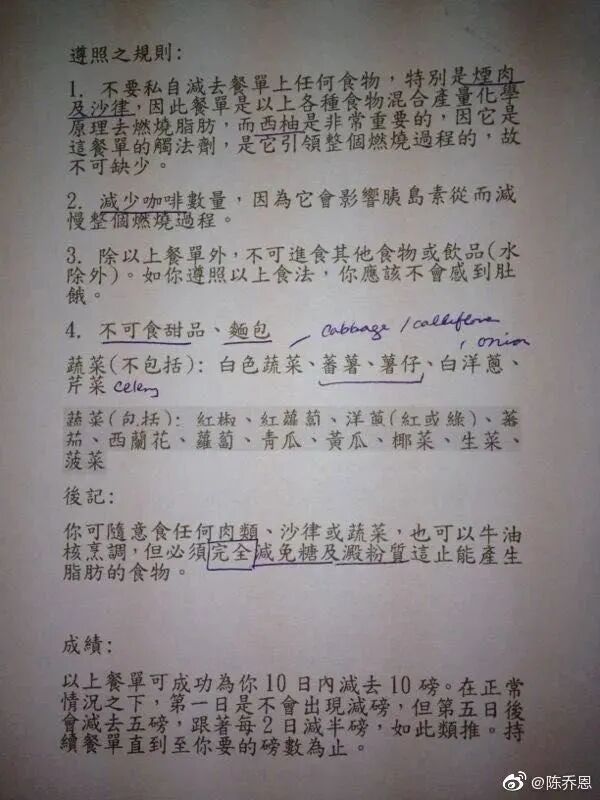 遵照之規則:
1. 不要私自減去餐單上任何食物，特別是煙肉
及沙律，因此餐單是以上各種食物混合產量化學
原理去燃燒脂肪，而西柚是非常重要的，因它是
這餐單的觸法劑，是它引領整個燃燒過程的，故
不可缺少。
2. 減少咖啡數量，因為它會影響胰島素從而減
慢整個燃燒過程。
3. 除以上餐單外，不可進食其他食物或飲品(水
除外)。如你遵照以上食法，你應該不會感到肚
餓。
4. 不可食甜品、麵包
cabbage /
onion
蔬菜(不包括): 白色蔬菜、蕃薯、薯仔、白洋蔥、
芹菜 celery
蔬菜(包括): 紅椒、紅蘿蔔、洋蔥(紅或綠)、蕃
茄、西蘭花、蘿蔔、青瓜、黃瓜、椰菜、生菜、
菠菜
後記:
你可隨意食任何肉類、沙律或蔬菜，也可以牛油
核烹調，但必須完全減免糖及澱粉質這止能產生
脂肪的食物。
成績:
以上餐單可成功為你 10 日內減去 10 磅。在正常
情況之下，第一日是不會出現減磅，但第五日後
會減去五磅，跟著每 2 日減半磅，如此類推。持
續餐單直到至你要的磅數為止。
@陈乔恩